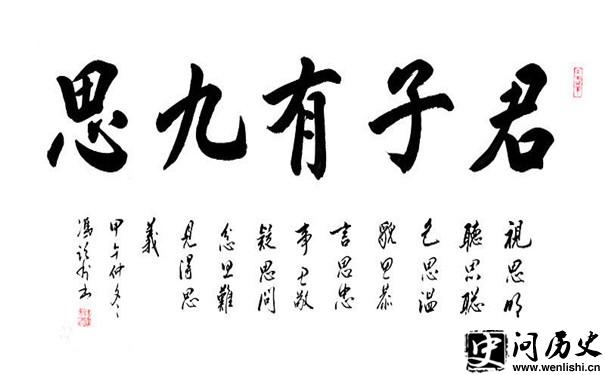 君子有九思
視思明
聽思聰
色思溫
貌思恭
言思忠
事思敬
疑思問
忿思難
見得思
義
甲午仲冬
馮
史 问历史
www.wenlishi.cn